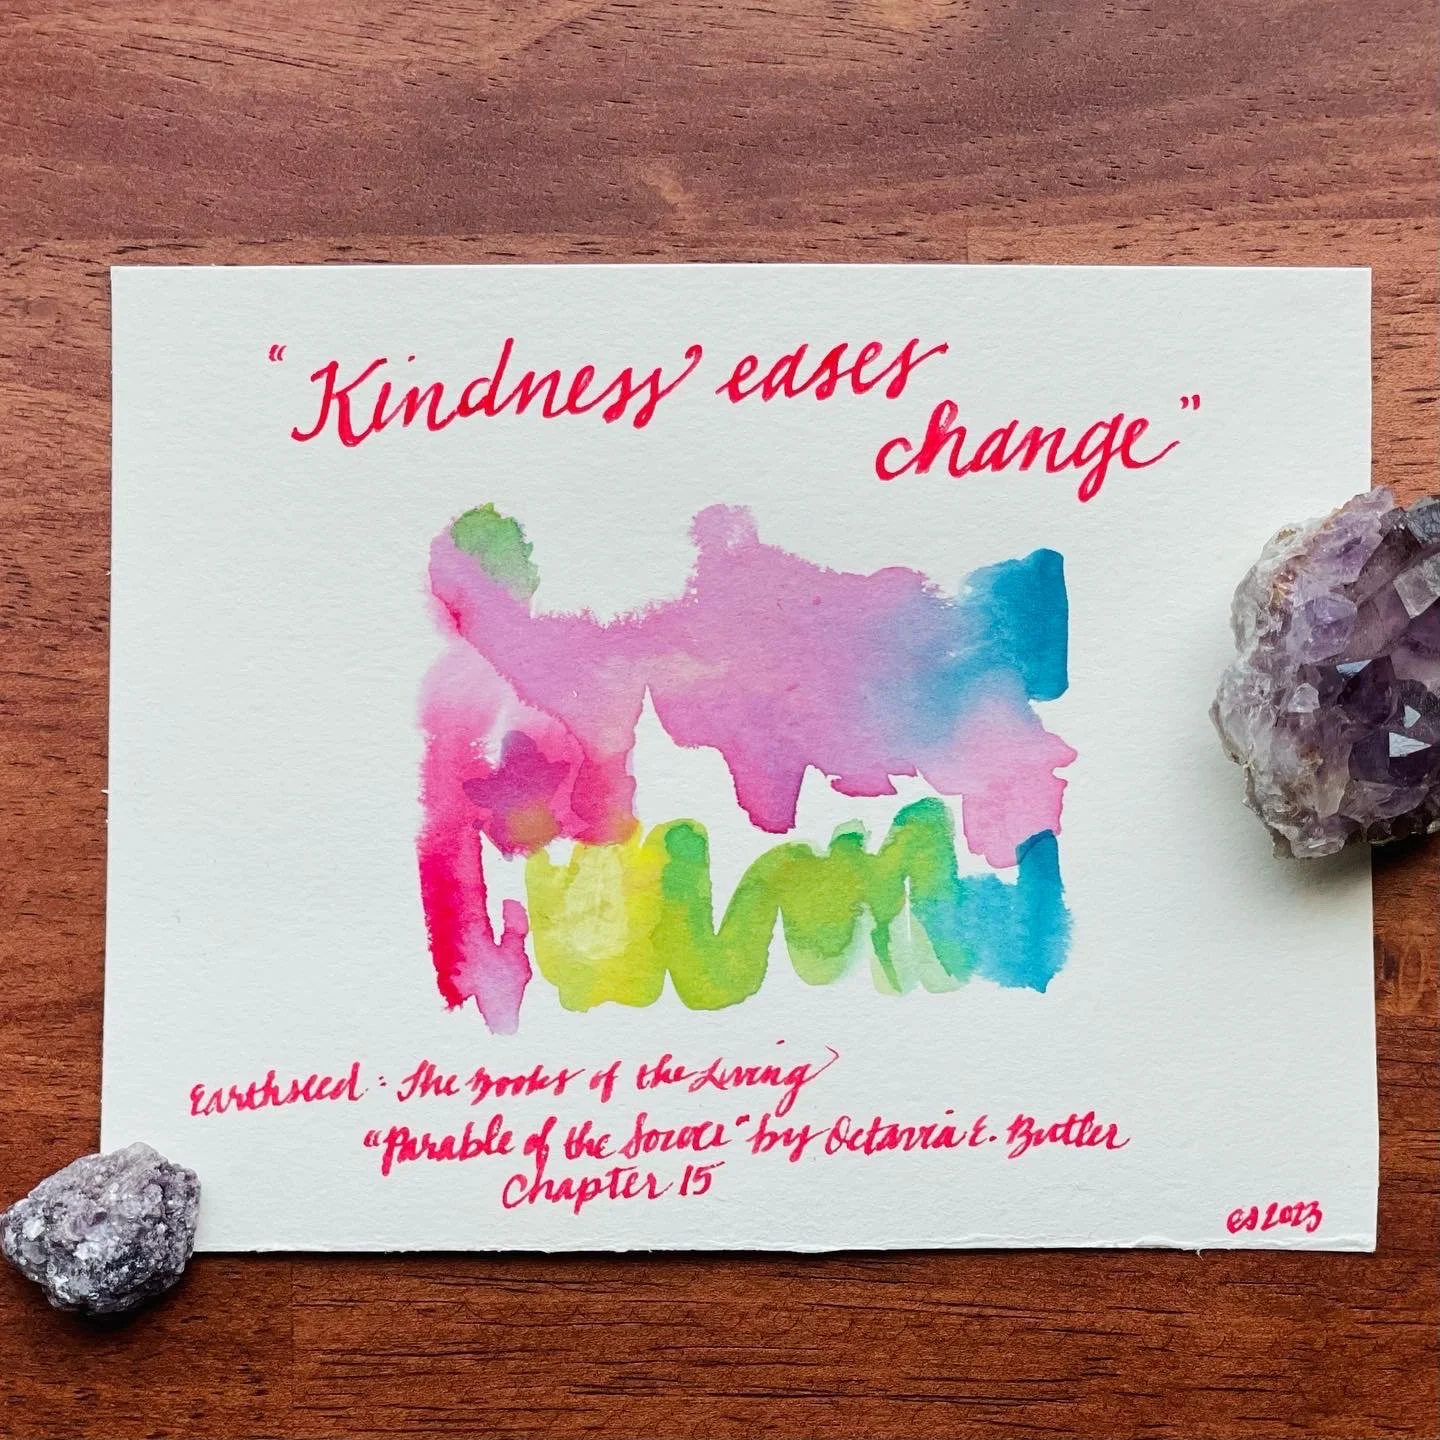 "Kindness eases
change"
Earthseed: The Books of the Living
"Parable of the Sower" by Octavia E. Butler
Chapter 15
es 2023